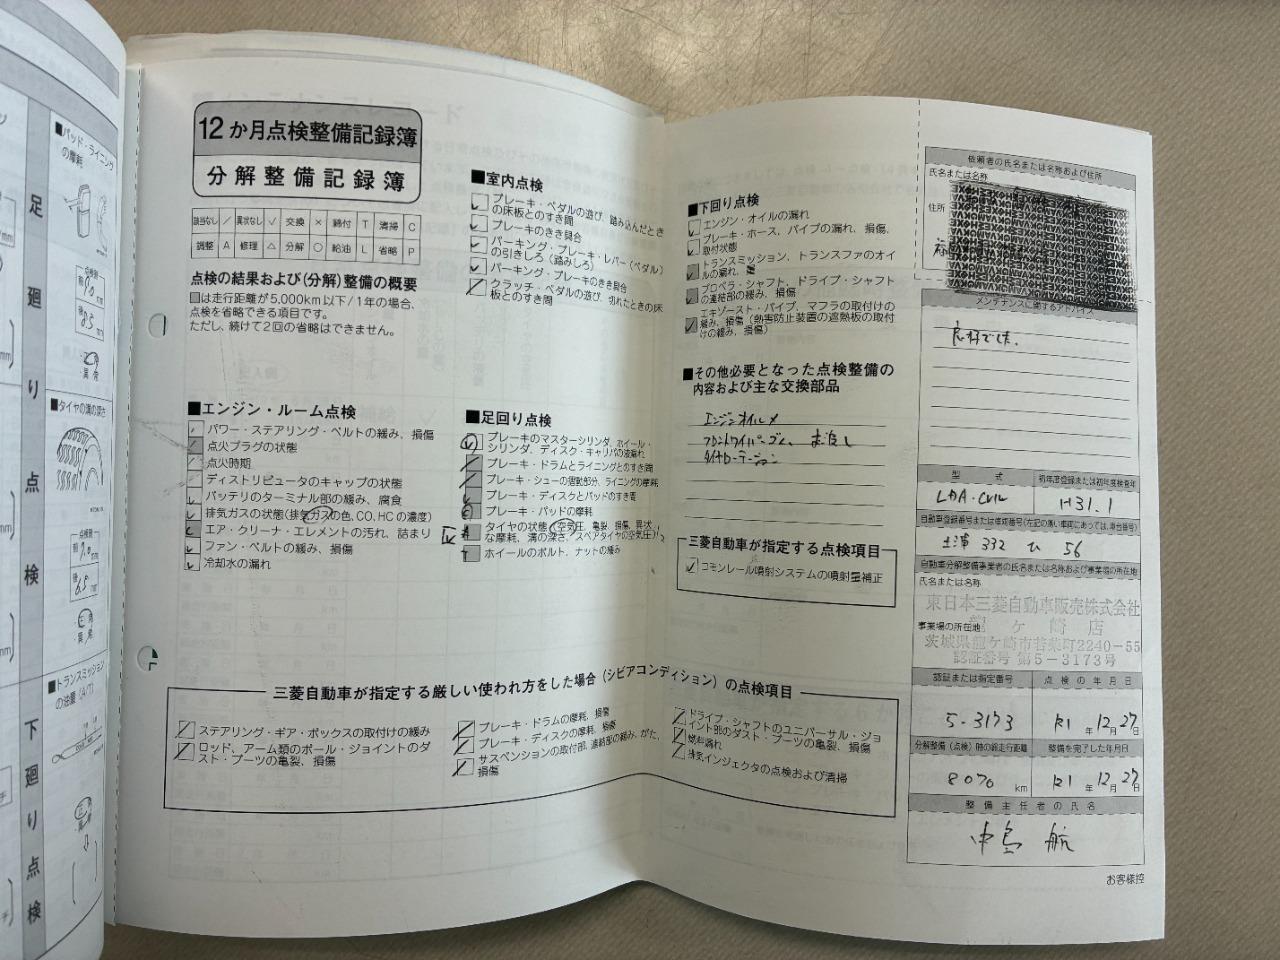 足廻り点検
下廻り点検
■パッド・ライニング
の摩耗
点検時
前9.0mm
後8.5mm
■タイヤの溝の深さ
点検時
前7.0mm
後6.5mm
■トランスミッション
の油量(A/T)
12か月点検整備記録簿
分解整備記録簿
該当なし / 異状なし ✓ 交換 × 締付 T 清掃 C
調整 A 修理 △ 分解 ○ 給油 L 省略 P
点検の結果および(分解)整備の概要
■は走行距離が5,000km以下/1年の場合、
点検を省略できる項目です。
ただし、続けて2回の省略はできません。
■エンジン・ルーム点検
パワー・ステアリング・ベルトの緩み、損傷
点火プラグの状態
点火時期
ディストリビュータのキャップの状態
バッテリのターミナル部の緩み、腐食
排気ガスの状態(排気ガスの色、CO、HCの濃度)
エア・クリーナ・エレメントの汚れ、詰まり
ファン・ベルトの緩み、損傷
冷却水の漏れ
■室内点検
ブレーキ・ペダルの遊び、踏み込んだとき
の床板とのすき間
ブレーキのきき具合
パーキング・ブレーキ・レバー(ペダル)
の引きしろ(踏みしろ)
パーキング・ブレーキのきき具合
クラッチ・ペダルの遊び、切れたときの床
板とのすき間
■足回り点検
ブレーキのマスターシリンダ、ホイール・
シリンダ、ディスク・キャリパの液漏れ
ブレーキ・ドラムとライニングとのすき間
ブレーキ・シューの摺動部分、ライニングの摩耗
ブレーキ・ディスクとパッドのすき間
ブレーキ・パッドの摩耗
タイヤの状態(空気圧、亀裂、損傷、異状
な摩耗、溝の深さ、スペアタイヤの空気圧)
ホイールのボルト、ナットの緩み
■下回り点検
エンジン・オイルの漏れ
ブレーキ・ホース、パイプの漏れ、損傷、
取付状態
トランスミッション、トランスファのオイ
ルの漏れ、量
プロペラ・シャフト、ドライブ・シャフト
の連結部の緩み、損傷
エキゾースト・パイプ、マフラの取付けの
緩み、損傷(熱害防止装置の遮熱板の取付
けの緩み、損傷)
■その他必要となった点検整備の
内容および主な交換部品
エンジンオイル✕
フロントワイパーゴム
タイヤローテーション
三菱自動車が指定する点検項目
✓ コモンレール噴射システムの噴射量補正
三菱自動車が指定する厳しい使われ方をした場合(シビアコンディション)の点検項目
ステアリング・ギア・ボックスの取付けの緩み
ロッド、アーム類のボール・ジョイントのダ
スト・ブーツの亀裂、損傷
ブレーキ・ドラムの摩耗、損傷
ブレーキ・ディスクの摩耗、損傷
サスペンションの取付部、連結部の緩み、がた、
損傷
ドライブ・シャフトのユニバーサル・ジョ
イント部のダスト・ブーツの亀裂、損傷
燃料漏れ
排気インジェクタの点検および清掃
依頼者の氏名または名称および住所
氏名または名称
住所
メンテナンスに関するアドバイス
良好でした。
型 式
初年度登録または初年度検査年
LDA-CV1W
H31.1
自動車登録番号または車両番号(左記の無い車両にあっては、車台番号)
土浦 332 ひ 56
自動車分解整備事業者の氏名または名称および事業場の所在地
氏名または名称
東日本三菱自動車販売株式会社
龍ヶ崎店
事業場の所在地
茨城県龍ケ崎市若柴町2240-55
認証番号 第5-3173号
認証または指定番号
点 検 の 年 月 日
5-3173
R1年12月27日
分解整備(点検)時の総走行距離
整備を完了した年月日
8070 km
R1年12月27日
整 備 主 任 者 の 氏 名
中島 航
お客様控